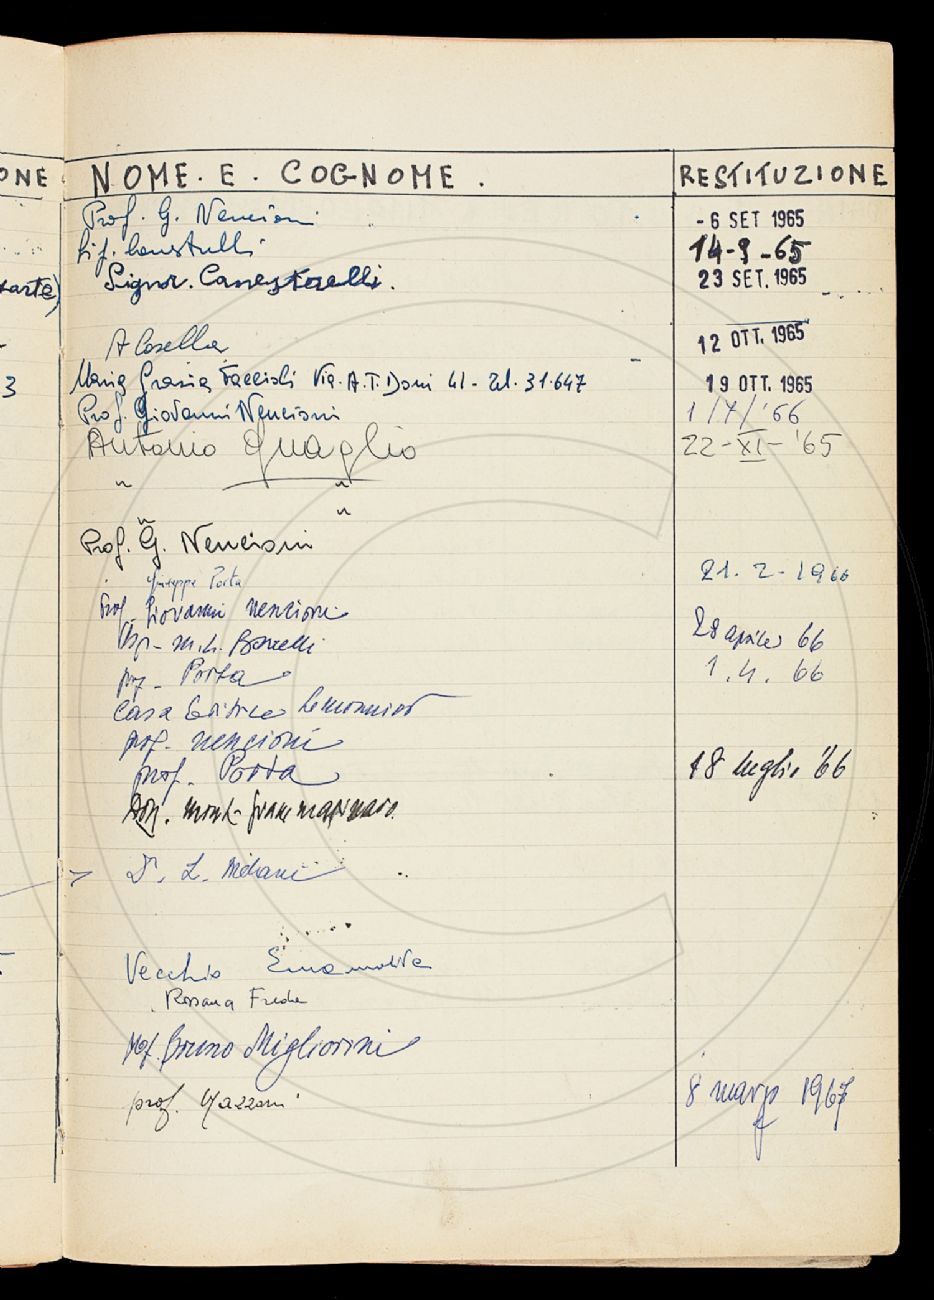 ONE NOME. E. COGNOME. RESTITUZIONE
Prof. G. Nencioni - 6 SET 1965
14-9-65
Signor. Canestrelli. 23 SET. 1965
A Casella 12 OTT. 1965
3 Maria Grazia Faccioli Via. A.T. Doni 41 - Tel. 31.647 19 OTT. 1965
Prof. Giovanni Nencioni 1/7/'66
Antonio Quaglio 22-XI-'65
" "
" "
Prof. G. Nencioni
Giuseppe Porta 21. 2 - 1966
Prof. Giovanni Nencioni
M.L. 28 aprile 66
prof. Porta 1. 4. 66
Casa Editrice Lemonnier
prof. Nencioni
prof. Porta 18 luglio '66
Dr. L. Melani
Vecchio
Rossana
prof. Bruno Migliorini
prof. Mazzoni 8 marzo 1967